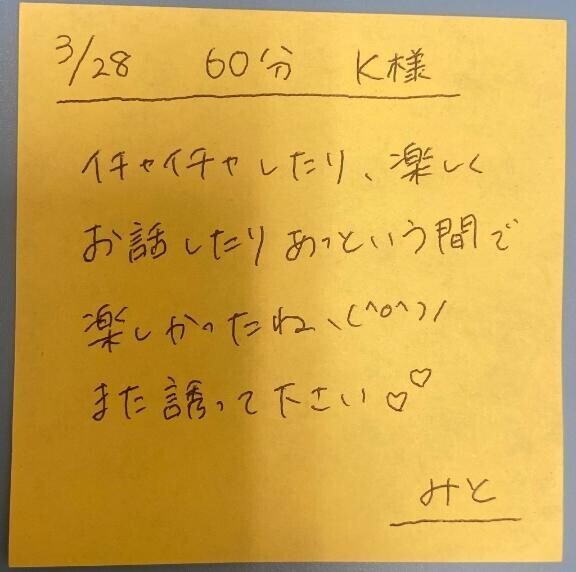 3/28 60分 K様
イチャイチャしたり、楽しく
お話したりあっという間で
楽しかったね、(^o^)/
また誘って下さい♡♡
みと